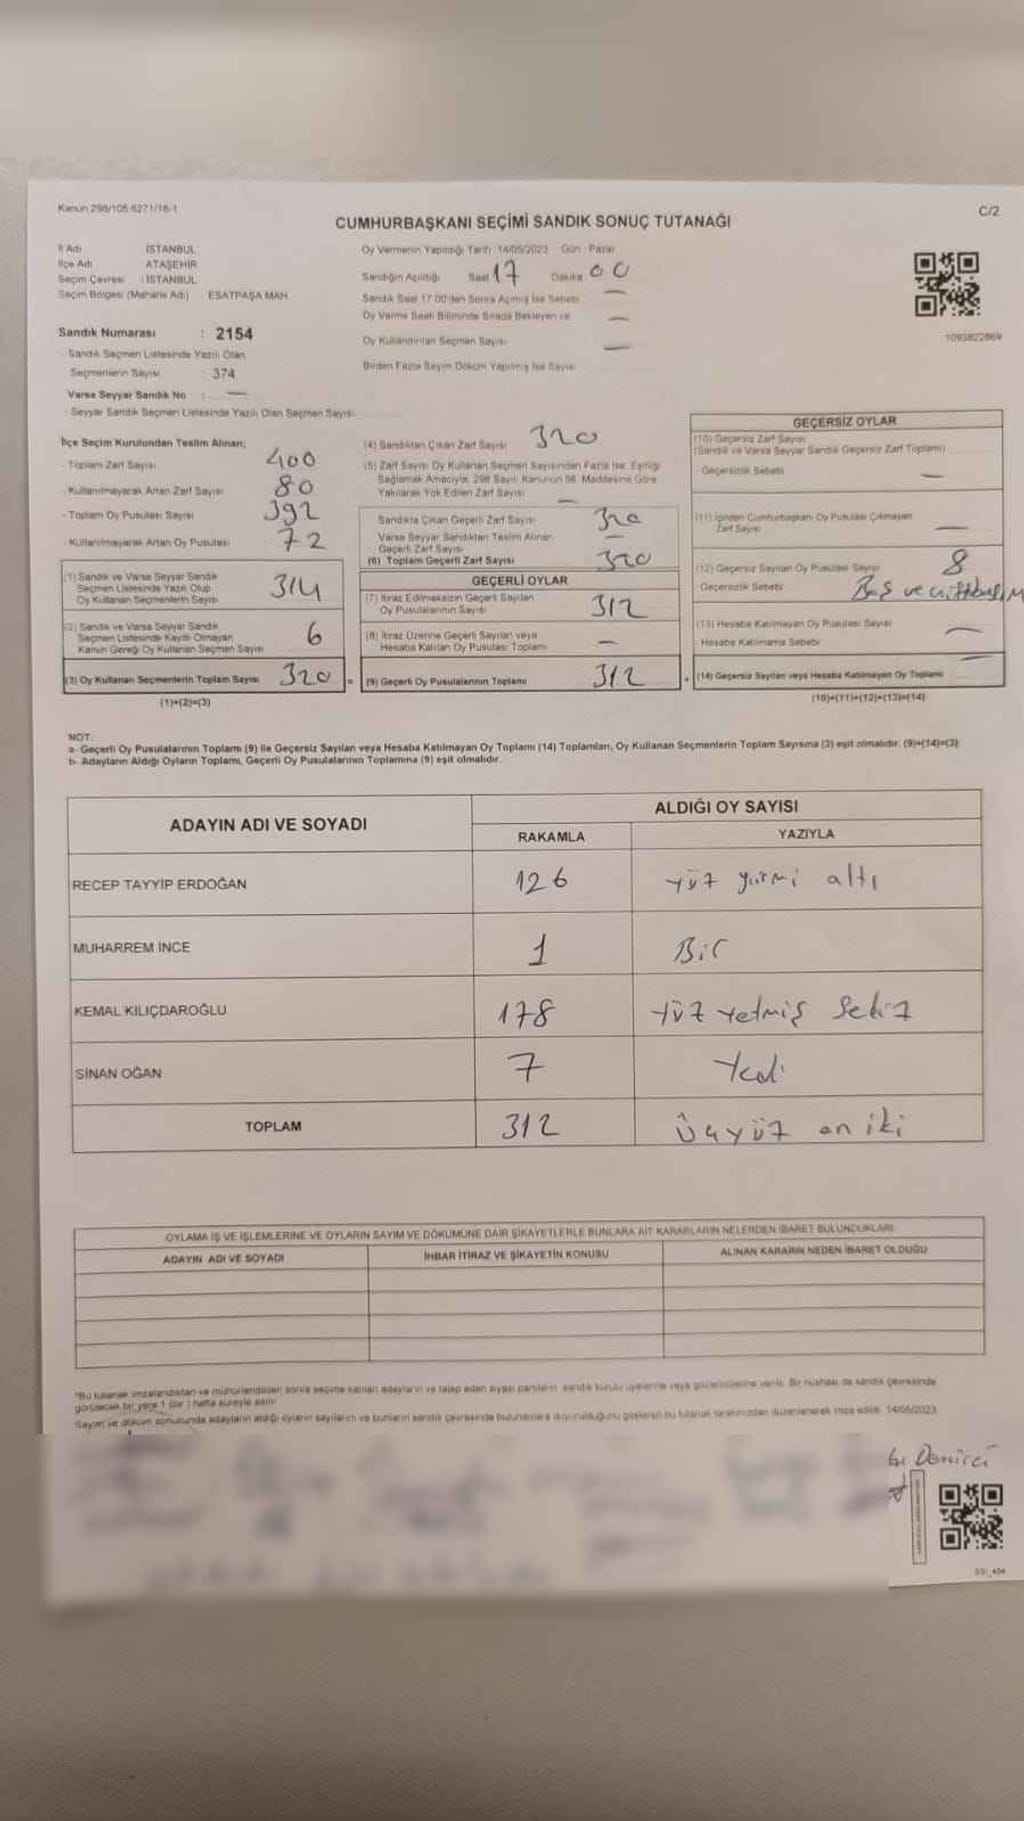 Kanun 298/105 6271/16-1
C/2
CUMHURBAŞKANI SEÇİMİ SANDIK SONUÇ TUTANAĞI
İl Adı İSTANBUL
İlçe Adı ATAŞEHİR
Seçim Çevresi : İSTANBUL
Seçim Bölgesi (Mahalle Adı) : ESATPAŞA MAH.
Sandık Numarası : 2154
- Sandık Seçmen Listesinde Yazılı Olan
Seçmenlerin Sayısı : 374
Varsa Seyyar Sandık No : —
- Seyyar Sandık Seçmen Listesinde Yazılı Olan Seçmen Sayısı
Oy Vermenin Yapıldığı Tarih 14/05/2023 Gün : Pazar
Sandığın Açıldığı Saat 17 Dakika 00
Sandık Saat 17.00'den Sonra Açılmış İse Sebebi —
Oy Verme Saati Bitiminde Sırada Bekleyen ve —
Oy Kullandırılan Seçmen Sayısı —
Birden Fazla Sayım Döküm Yapılmış İse Sayısı
1093822869
İlçe Seçim Kurulundan Teslim Alınan;
- Toplam Zarf Sayısı 400
- Kullanılmayarak Artan Zarf Sayısı 80
- Toplam Oy Pusulası Sayısı 392
- Kullanılmayarak Artan Oy Pusulası 72
(1) Sandık ve Varsa Seyyar Sandık
Seçmen Listesinde Yazılı Olup
Oy Kullanan Seçmenlerin Sayısı 314
(2) Sandık ve Varsa Seyyar Sandık
Seçmen Listesinde Kayıtlı Olmayan
Kanun Gereği Oy Kullanan Seçmen Sayısı 6
(3) Oy Kullanan Seçmenlerin Toplam Sayısı 320 =
(1)+(2)=(3)
(4) Sandıktan Çıkan Zarf Sayısı 320
(5) Zarf Sayısı Oy Kullanan Seçmen Sayısından Fazla İse, Eşitliği
Sağlamak Amacıyla, 298 Sayılı Kanunun 98. Maddesine Göre
Yakılarak Yok Edilen Zarf Sayısı —
Sandıkta Çıkan Geçerli Zarf Sayısı 320
Varsa Seyyar Sandıktan Teslim Alınan —
Geçerli Zarf Sayısı
(6) Toplam Geçerli Zarf Sayısı 320
GEÇERLİ OYLAR
(7) İtiraz Edilmeksizin Geçerli Sayılan
Oy Pusulalarının Sayısı 312
(8) İtiraz Üzerine Geçerli Sayılan veya
Hesaba Katılan Oy Pusulası Toplamı —
(9) Geçerli Oy Pusulalarının Toplamı 312 +
GEÇERSİZ OYLAR
(10) Geçersiz Zarf Sayısı
(Sandık ve Varsa Seyyar Sandık Geçersiz Zarf Toplamı)
Geçersizlik Sebebi —
(11) İçinden Cumhurbaşkanı Oy Pusulası Çıkmayan
Zarf Sayısı —
(12) Geçersiz Sayılan Oy Pusulası Sayısı 8
Geçersizlik Sebebi Boş ve
(13) Hesaba Katılmayan Oy Pusulası Sayısı —
Hesaba Katılmama Sebebi —
(14) Geçersiz Sayılan veya Hesaba Katılmayan Oy Toplamı
(10)+(11)+(12)+(13)=(14)
NOT:
a- Geçerli Oy Pusulalarının Toplamı (9) ile Geçersiz Sayılan veya Hesaba Katılmayan Oy Toplamı (14) Toplamları, Oy Kullanan Seçmenlerin Toplam Sayısına (3) eşit olmalıdır. (9)+(14)=(3)
b- Adayların Aldığı Oyların Toplamı, Geçerli Oy Pusulalarının Toplamına (9) eşit olmalıdır.
ADAYIN ADI VE SOYADI
ALDIĞI OY SAYISI
RAKAMLA YAZIYLA
RECEP TAYYİP ERDOĞAN 126 yüz yirmi altı
MUHARREM İNCE 1 Bir
KEMAL KILIÇDAROĞLU 178 yüz yetmiş sekiz
SİNAN OĞAN 7 Yedi
TOPLAM 312 üçyüz on iki
OYLAMA İŞ VE İŞLEMLERİNE VE OYLARIN SAYIM VE DÖKÜMÜNE DAİR ŞİKAYETLERLE BUNLARA AİT KARARLARIN NELERDEN İBARET BULUNDUKLARI
ADAYIN ADI VE SOYADI İHBAR İTİRAZ VE ŞİKAYETİN KONUSU ALINAN KARARIN NEDEN İBARET OLDUĞU
*Bu tutanak imzalandıktan ve mühürlendikten sonra seçime katılan adayların ve talep eden siyasi partilerin sandık kurulu üyelerine veya gözlemcilerine verilir. Bir nüshası da sandık çevresinde
görülecek bir yere 1 (bir) hafta süreyle asılır.
Sayım ve döküm sonucunda adayların aldığı oyların sayılarını ve bunların sandık çevresinde bulunanlara duyurulduğunu gösteren bu tutanak tarafımızdan düzenlenerek imza edildi. 14/05/2023
Demirci